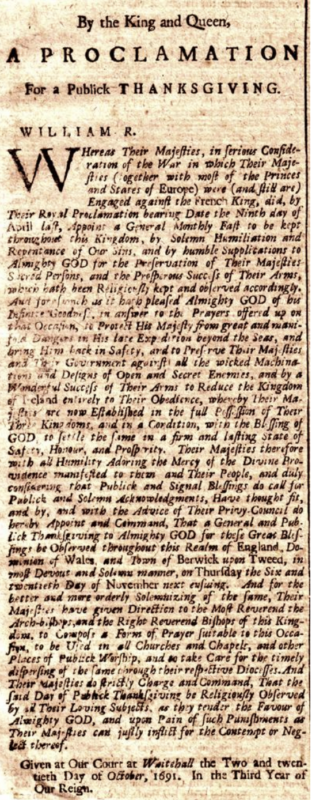 By the King and Queen,
A PROCLAMATION
For a Publick THANKSGIVING.
WILLIAM R.
WHereas Their Majesties, in serious Conside-
ration of the War in which Their Maje-
sties (together with most of the Princes
and States of Europe) were (and still are)
Engaged against the French King, did, by
Their Royal Proclamation bearing Date the Ninth day of
April last, Appoint a General Monthly Fast to be kept
throughout this Kingdom, by Solemn Humiliation and
Repentance of Our Sins, and by humble Supplications to
Almighty GOD for the Preservation of Their Majesties
Sacred Persons, and the Prosperous Success of Their Arms,
which hath been Religiously kept and observed accordingly.
And forasmuch as it hath pleased Almighty GOD of his
Infinite Goodness, in answer to the Prayers offered up on
that Occasion, to Protect His Majesty from great and mani-
fold Dangers in His late Expedition beyond the Seas, and
bring Him back in Safety, and to Preserve Their Majesties
and Their Government against all the wicked Machina-
tions and Designs of Open and Secret Enemies, and by a
Wonderful Success of Their Arms to Reduce the Kingdom
of Ireland entirely to Their Obedience, whereby Their Ma-
jesties are now Established in the full Possession of Their
Three Kingdoms, and in a Condition, with the Blessing of
GOD, to settle the same in a firm and lasting State of
Safety, Honour, and Prosperity. Their Majesties therefore
with all Humility Adoring the Mercy of the Divine Pro-
vidence manifested to them and Their People, and duly
considering that Publick and Signal Blessings do call for
Publick and Solemn Acknowledgments, Have thought fit,
and by, and with the Advice of Their Privy-Council do
hereby Appoint and Command, That a General and Pub-
lick Thanksgiving to Almighty GOD for these Great Bles-
sings be Observed throughout this Realm of England, Do-
minion of Wales, and Town of Berwick upon Tweed, in
most Devout and Solemn manner, on Thursday the Six and
twentieth Day of November next ensuing. And for the
better and more orderly Solemnizing of the same, Their
Majesties have given Direction to the Most Reverend the
Arch-bishops, and the Right Reverend Bishops of this King-
dom, to Compose a Form of Prayer suitable to this Occa-
sion, to be Used in all Churches and Chapels, and other
Places of Publick Worship, and to take Care for the timely
dispersing of the same through their respective Dioceses. And
Their Majesties do strictly Charge and Command, That the
said Day of Publick Thanksgiving be Religiously Observed
by all Their Loving Subjects, as they tender the Favour of
Almighty GOD, and upon Pain of such Punishments as
Their Majesties can justly inflict for the Contempt or Neg-
lect thereof.
Given at Our Court at Whitehall the Two and twen-
tieth Day of October, 1691. In the Third Year of
Our Reign.